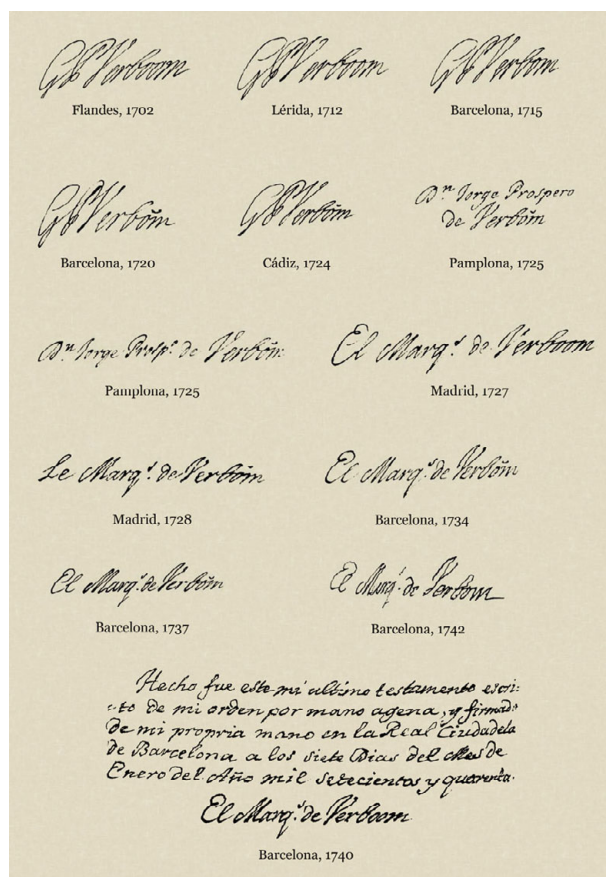 GPVerboom
Flandes, 1702
GPVerboom
Lérida, 1712
GPVerbom
Barcelona, 1715
GPVerbom
Barcelona, 1720
GPVerbom
Cádiz, 1724
Dn. Jorge Prospero
de Verbom
Pamplona, 1725
Dn. Jorge Prospo. de Verbom
Pamplona, 1725
El Marqs. de Verboom
Madrid, 1727
Le Marqs. de Verbom
Madrid, 1728
El Marqs. de Verbom
Barcelona, 1734
El Marqs. de Verbom
Barcelona, 1737
El Marqs. de Verbom
Barcelona, 1742
Hecho fue este mi ultimo testamento escri:
:to de mi orden por mano agena, y firmado
de mi propria mano en la Real Ciudadela
de Barcelona a los siete Dias del Mes de
Enero del Año mil setecientos y quarenta.
El Marqs. de Verboom
Barcelona, 1740